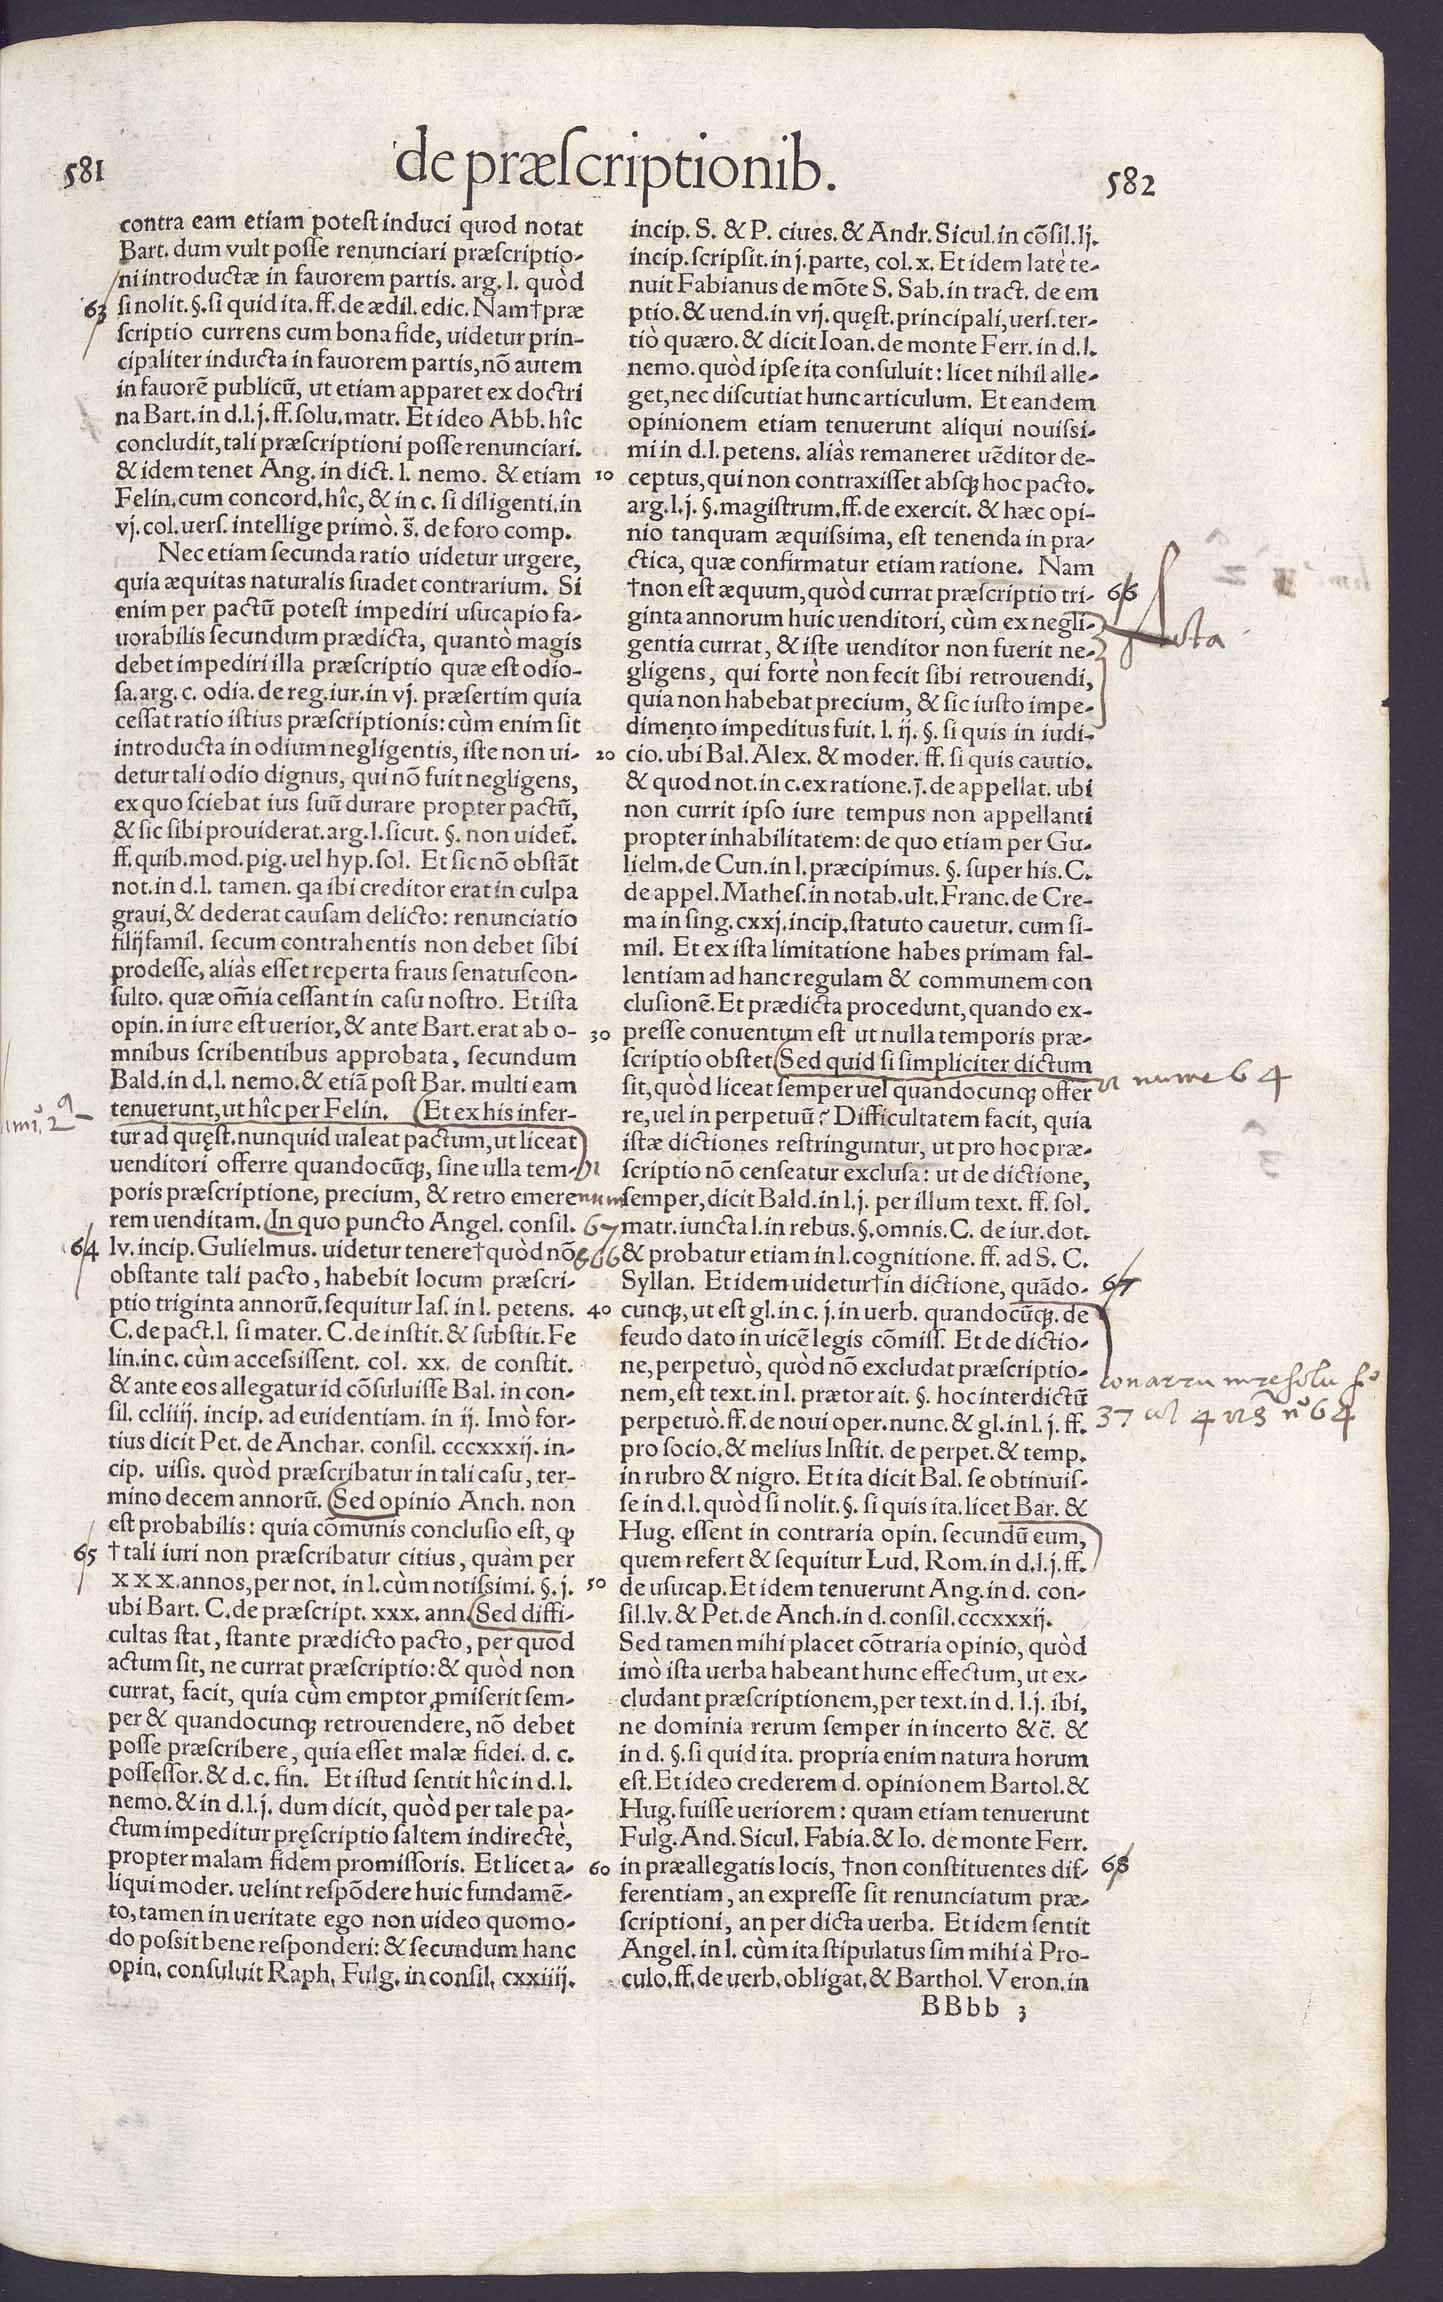 581
de præſcriptionib.
582
contra eam etiam poteſt induci quod notat
Bart. dum vult poſſe renunciari præſcriptio-
ni introductæ in fauorem partis. arg. l. quòd
63 ſi nolit. §. ſi quid ita. ff. de ædil. edic. Nam † præ
ſcriptio currens cum bona fide, uidetur prin-
cipaliter inducta in fauorem partis, nō autem
in fauorē publicū, ut etiam apparet ex doctri
na Bart. in d. l. j. ff. ſolu. matr. Et ideo Abb. hîc
concludit, tali præſcriptioni poſſe renunciari.
& idem tenet Ang. in dict. l. nemo. & etiam 10
Felin. cum concord. hîc, & in c. ſi diligenti. in
vj. col. uerſ. intellige primò. s̄. de foro comp.
Nec etiam ſecunda ratio uidetur urgere,
quia æquitas naturalis ſuadet contrarium. Si
enim per pactū poteſt impediri uſucapio fa-
uorabilis ſecundum prædicta, quantò magis
debet impediri illa præſcriptio quæ eſt odio-
ſa. arg. c. odia. de reg. iur. in vj. præſertim quia
ceſſat ratio iſtius præſcriptionis: cùm enim ſit
introducta in odium negligentis, iſte non ui- 20
detur tali odio dignus, qui nō fuit negligens,
ex quo ſciebat ius ſuū durare propter pactū,
& ſic ſibi prouiderat. arg. l. ſicut. §. non uidet̄.
ff. quib. mod. pig. uel hyp. ſol. Et ſic nō obſtāt
not. in d. l. tamen. qa ibi creditor erat in culpa
graui, & dederat cauſam delicto: renunciatio
filijfamil. ſecum contrahentis non debet ſibi
prodeſſe, aliàs eſſet reperta fraus ſenatuſcon-
ſulto. quæ om̄ia ceſſant in caſu noſtro. Et iſta
opin. in iure eſt uerior, & ante Bart. erat ab o- 30
mnibus ſcribentibus approbata, ſecundum
Bald. in d. l. nemo. & etiā poſt Bar. multi eam
tenuerunt, ut hîc per Felin. Et ex his infer-
tur ad quęſt. nunquid ualeat pactum, ut liceat
uenditori offerre quandocūq;, ſine ulla tem-
poris præſcriptione, precium, & retro emere
rem uenditam. In quo puncto Angel. conſil.
64 lv. incip. Gulielmus. uidetur tenere † quòd nō
obſtante tali pacto, habebit locum præſcri-
ptio triginta annorū. ſequitur Iaſ. in l. petens. 40
C. de pact. l. ſi mater. C. de inſtit. & ſubſtit. Fe
lin. in c. cùm acceſsiſſent. col. xx. de conſtit.
& ante eos allegatur id cōſuluiſſe Bal. in con-
ſil. ccliiij. incip. ad euidentiam. in ij. Imò for-
tius dicit Pet. de Anchar. conſil. cccxxxij. in-
cip. uiſis. quòd præſcribatur in tali caſu, ter-
mino decem annorū. Sed opinio Anch. non
eſt probabilis: quia cōmunis concluſio eſt, ꝙ
65 † tali iuri non præſcribatur citius, quàm per
XXX. annos, per not. in l. cùm notiſsimi. §. j. 50
ubi Bart. C. de præſcript. xxx. ann. Sed diffi-
cultas ſtat, ſtante prædicto pacto, per quod
actum ſit, ne currat præſcriptio: & quòd non
currat, facit, quia cùm emptor ꝓmiſerit ſem-
per & quandocunq; retrouendere, nō debet
poſſe præſcribere, quia eſſet malæ fidei. d. c.
poſſeſſor. & d. c. fin. Et iſtud ſentit hîc in d. l.
nemo. & in d. l. j. dum dicit, quòd per tale pa-
ctum impeditur pręſcriptio ſaltem indirectè,
propter malam fidem promiſſoris. Et licet a- 60
liqui moder. uelint reſpōdere huic fundamē-
to, tamen in ueritate ego non uideo quomo-
do poſsit bene reſponderi: & ſecundum hanc
opin. conſuluit Raph. Fulg. in conſil. cxxiiij.
incip. S. & P. ciues. & Andr. Sicul. in cōſil. lj.
incip. ſcripſit. in j. parte, col. x. Et idem latè te-
nuit Fabianus de mōte S. Sab. in tract. de em
ptio. & uend. in vij. quęſt. principali, uerſ. ter-
tiò quæro. & dicit Ioan. de monte Ferr. in d. l.
nemo. quòd ipſe ita conſuluit: licet nihil alle-
get, nec diſcutiat hunc articulum. Et eandem
opinionem etiam tenuerunt aliqui nouiſsi-
mi in d. l. petens. aliàs remaneret uēditor de-
ceptus, qui non contraxiſſet abſq; hoc pacto.
arg. l. j. §. magiſtrum. ff. de exercit. & hæc opi-
nio tanquam æquiſsima, eſt tenenda in pra-
ctica, quæ confirmatur etiam ratione. Nam
† non eſt æquum, quòd currat præſcriptio tri- 66
ginta annorum huic uenditori, cùm ex negli-
gentia currat, & iſte uenditor non fuerit ne-
gligens, qui fortè non fecit ſibi retrouendi,
quia non habebat precium, & ſic iuſto impe-
dimento impeditus fuit. l. ij. §. ſi quis in iudi-
cio. ubi Bal. Alex. & moder. ff. ſi quis cautio.
& quod not. in c. ex ratione. j̄. de appellat. ubi
non currit ipſo iure tempus non appellanti
propter inhabilitatem: de quo etiam per Gu-
lielm. de Cun. in l. præcipimus. §. ſuper his. C.
de appel. Matheſ. in notab. ult. Franc. de Cre-
ma in ſing. cxxj. incip. ſtatuto cauetur. cum ſi-
mil. Et ex iſta limitatione habes primam fal-
lentiam ad hanc regulam & communem con
cluſionē. Et prædicta procedunt, quando ex-
preſſe conuentum eſt ut nulla temporis præ-
ſcriptio obſtet. Sed quid ſi ſimpliciter dictum
ſit, quòd liceat ſemper uel quandocunq; offer
re, uel in perpetuū? Difficultatem facit, quia
iſtæ dictiones reſtringuntur, ut pro hoc præ-
ſcriptio nō cenſeatur excluſa: ut de dictione,
ſemper, dicit Bald. in l. j. per illum text. ff. ſol.
matr. iuncta l. in rebus. §. omnis. C. de iur. dot.
& probatur etiam in l. cognitione. ff. ad S. C.
Syllan. Et idem uidetur † in dictione, quādo- 67
cunq;, ut eſt gl. in c. j. in uerb. quandocūq;. de
feudo dato in uicē legis cōmiſſ. Et de dictio-
ne, perpetuò, quòd nō excludat præſcriptio-
nem, eſt text. in l. prætor ait. §. hoc interdictū
perpetuò. ff. de noui oper. nunc. & gl. in l. j. ff.
pro ſocio. & melius Inſtit. de perpet. & temp.
in rubro & nigro. Et ita dicit Bal. ſe obtinuiſ-
ſe in d. l. quòd ſi nolit. §. ſi quis ita. licet Bar. &
Hug. eſſent in contraria opin. ſecundū eum,
quem refert & ſequitur Lud. Rom. in d. l. j. ff.
de uſucap. Et idem tenuerunt Ang. in d. con-
ſil. lv. & Pet. de Anch. in d. conſil. cccxxxij.
Sed tamen mihi placet cōtraria opinio, quòd
imò iſta uerba habeant hunc effectum, ut ex-
cludant præſcriptionem, per text. in d. l. j. ibi,
ne dominia rerum ſemper in incerto & c̄. &
in d. §. ſi quid ita. propria enim natura horum
eſt. Et ideo crederem d. opinionem Bartol. &
Hug. fuiſſe ueriorem: quam etiam tenuerunt
Fulg. And. Sicul. Fabia. & Io. de monte Ferr.
in præallegatis locis, † non conſtituentes dif- 68
ferentiam, an expreſſe ſit renunciatum præ-
ſcriptioni, an per dicta uerba. Et idem ſentit
Angel. in l. cùm ita ſtipulatus ſim mihi à Pro-
culo. ff. de uerb. obligat. & Barthol. Veron. in
BBbb 3
nume 64
67
&66
37 4 nº 64